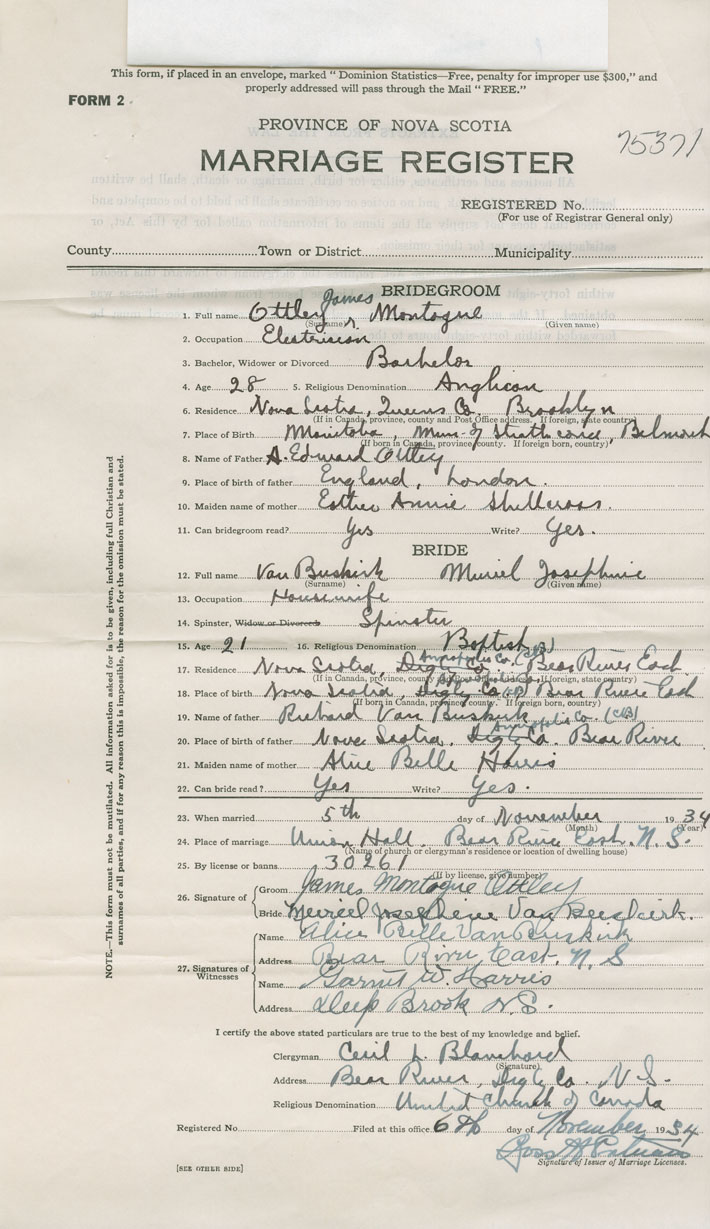 This form, if placed in an envelope, marked " Dominion Statistics—Free, penalty for improper use $300," and
properly addressed will pass through the Mail " FREE."
FORM 2
PROVINCE OF NOVA SCOTIA
75371
MARRIAGE REGISTER
REGISTERED No.
(For use of Registrar General only)
County Town or District Municipality
BRIDEGROOM
James
1. Full name Ottley, Montague
(Surname) (Given name)
2. Occupation Electrician
3. Bachelor, Widower or Divorced Bachelor
4. Age 28 5. Religious Denomination Anglican
6. Residence Nova Scotia, Queens Co. Brooklyn
(If in Canada, province, county and Post Office address. If foreign, state country)
7. Place of Birth Manitoba, Mun. of Strathcona, Belmont
(If born in Canada, province, county. If foreign born, country)
8. Name of Father A. Edward Ottley
9. Place of birth of father England, London.
10. Maiden name of mother Esther Annie Shellcross.
11. Can bridegroom read? Yes Write? Yes.
BRIDE
12. Full name Van Buskirk Muriel Josephine
(Surname) (Given name)
13. Occupation Housewife
14. Spinster, Widow or Divorced Spinster
15. Age 21 16. Religious Denomination Baptist
Annapolis Co.
17. Residence Nova Scotia, Digby Co. Bear River East
(If in Canada, province, county state country)
18. Place of birth Nova Scotia, Digby Co. Bear River East
(If born in Canada, province, county. If foreign born, country)
19. Name of father Richard Van Buskirk
Annapolis Co.
20. Place of birth of father Nova Scotia, Digby Co. Bear River
21. Maiden name of mother Alice Belle Harris
22. Can bride read? Yes Write? Yes.
23. When married 5th day of November 1934
(Month) (Year)
24. Place of marriage Union Hall, Bear River East. N. S.
(Name of church or clergyman's residence or location of dwelling house)
25. By license or banns 30261
(If by license, give number)
26. Signature of
Groom James Montague Ottley
Bride Muriel Josephine Van Buskirk.
27. Signatures of Witnesses
Name Alice Belle Van Buskirk
Address Bear River East. N. S
Name Garnet W. Harris
Address Deep Brook N.S.
I certify the above stated particulars are true to the best of my knowledge and belief.
Clergyman Cecil L. Blanchard
(Signature)
Address Bear River, Digby Co. N.S.
Religious Denomination United Church of Canada
Registered No. Filed at this office 6th day of November 1934
Signature of Issuer of Marriage Licenses.
[SEE OTHER SIDE]
NOTE.—This form must not be mutilated. All information asked for is to be given, including full Christian and
surnames of all parties, and if for any reason this is impossible, the reason for the omission must be stated.